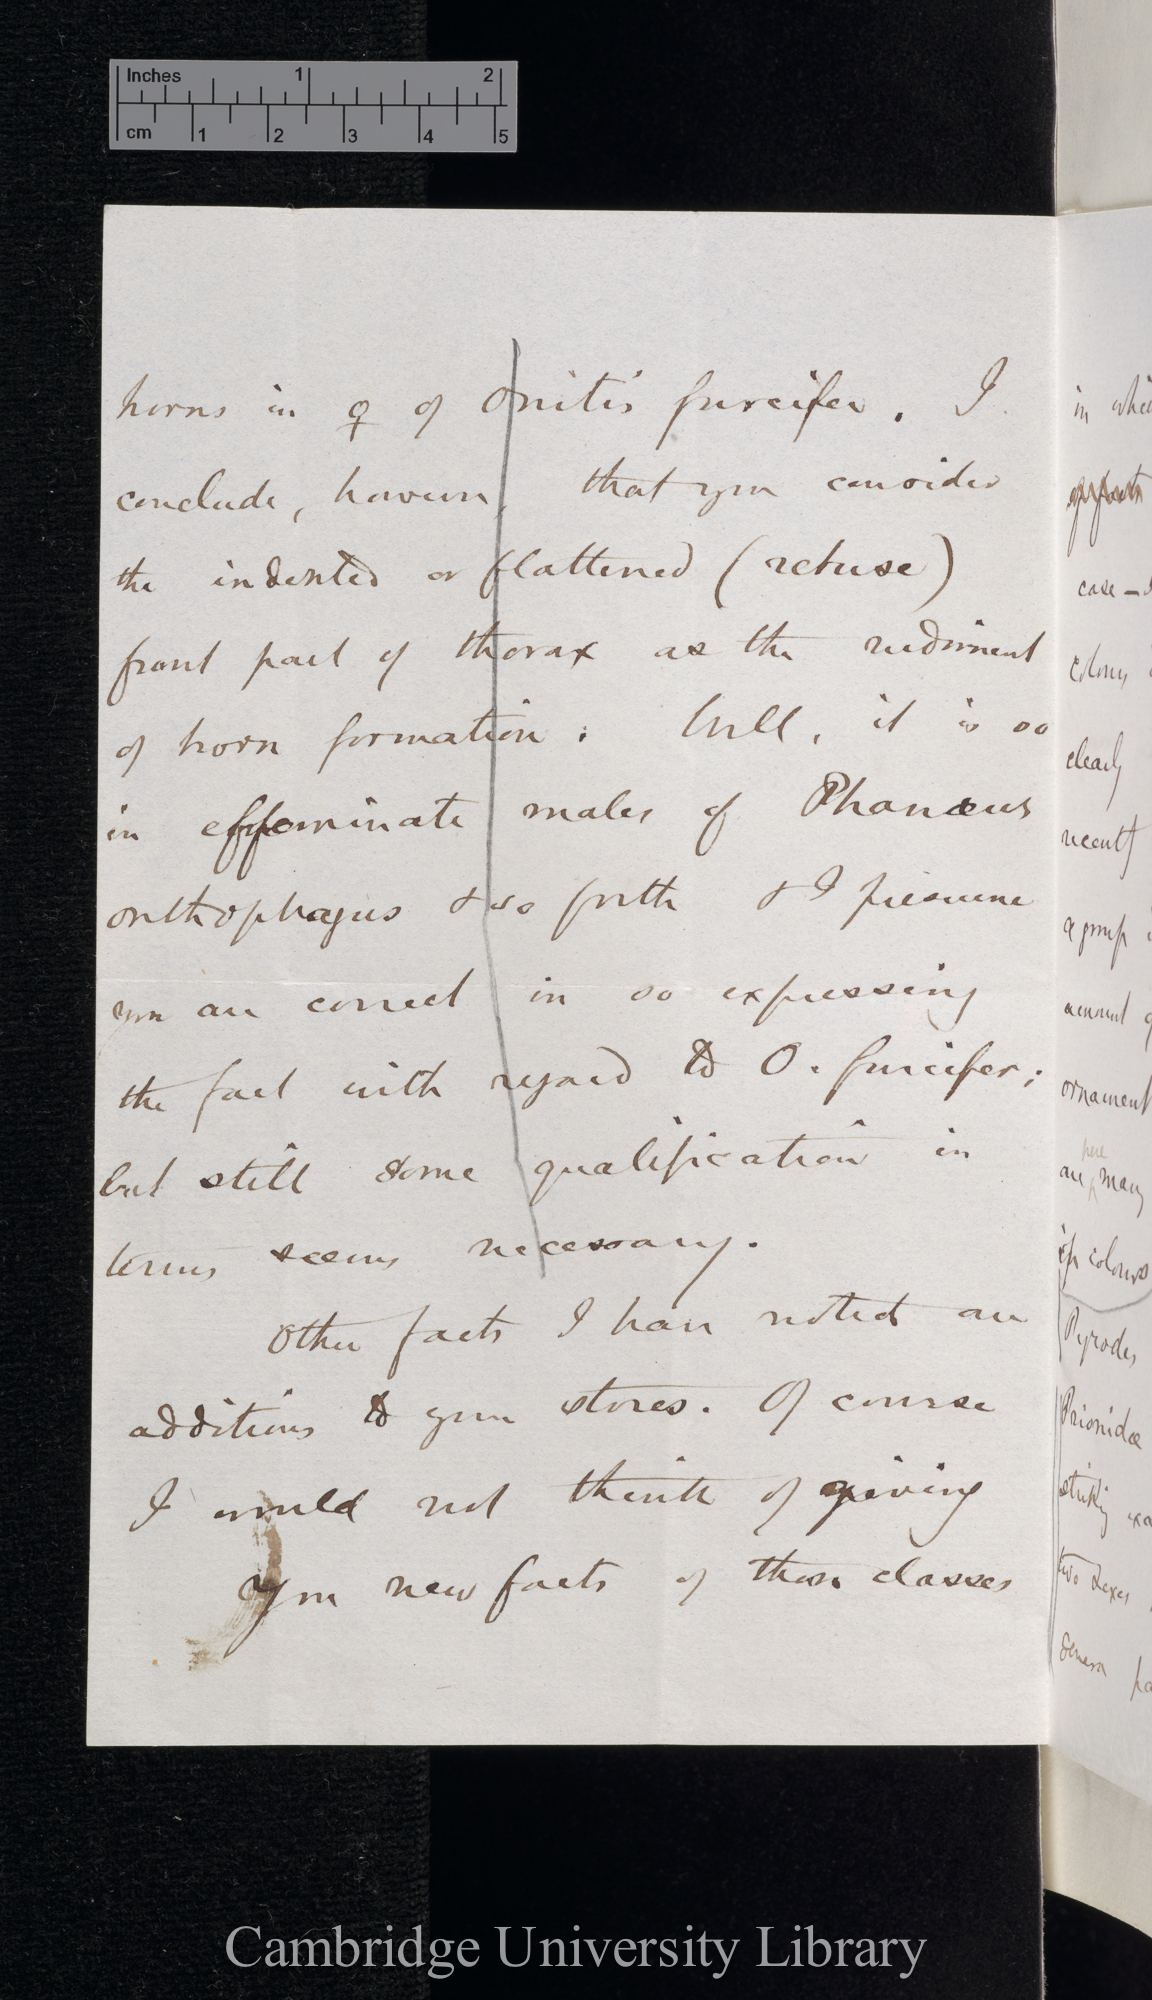 Inches 1 2
cm 1 2 3 4 5
horns in ♀ of Onitis furcifer. I
conclude, however, that you consider
the indented or flattened (retuse)
front part of thorax as the rudiment
of horn formation: Well, it is so
in effeminate males of Phanæus
onthophagus & so forth & I presume
you are correct in so expressing
the fact with regard to O. furcifer;
but still some qualification in
terms seems necessary.
Other facts I have noted are
additions to your stores. Of course
I would not think of giving
you new facts of these classes
in
case —
colours
clearly
recent
a group
amount
ornament
here
are many
colours
Pyrodes
Prionidæ
two sexes
Cambridge University Library